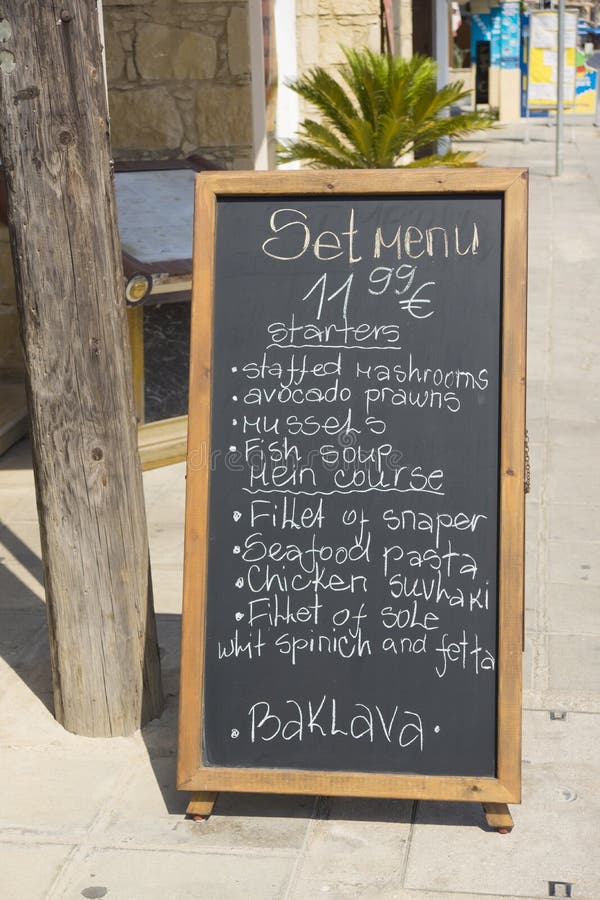 Set Menu
11 99 €
starters
• staffed mashrooms
• avocado prawns
• Mussels
• Fish soup
Mein course
• Fillet of snaper
• Seafood pasta
• Chicken suvhaki
• Fillet of sole
whit spinich and fetta
• BAKLAVA •